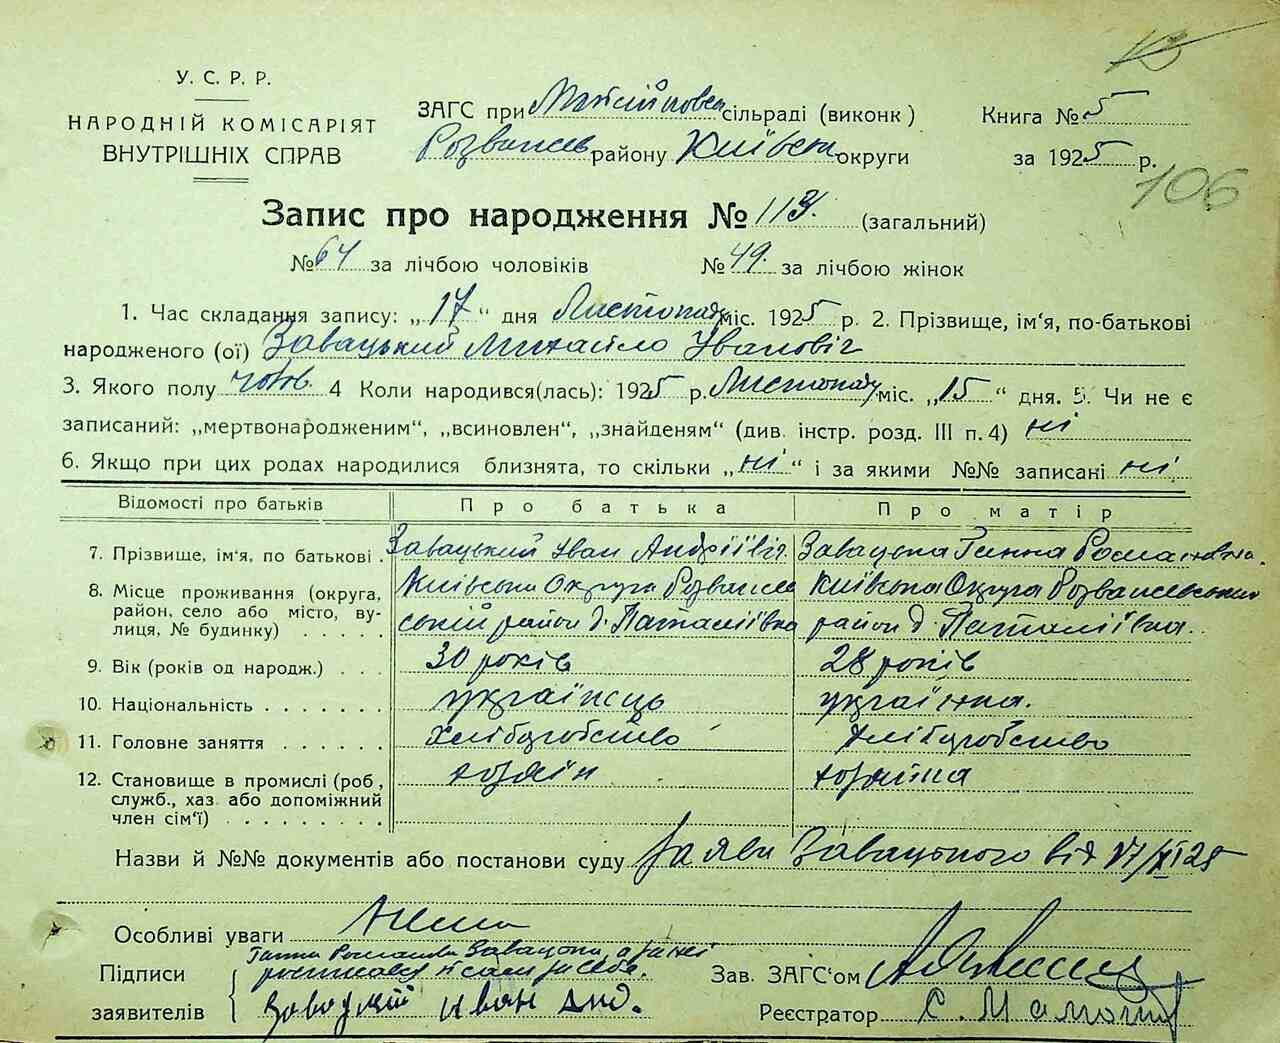 У. С. Р. Р.
НАРОДНІЙ КОМІСАРІЯТ
ВНУТРІШНІХ СПРАВ
ЗАГС при сільраді (виконк)
Розважев району Київськ округи
Книга № 5
за 1925 р.
106
Запис про народження № 113. (загальний)
№ 64 за лічбою чоловіків № 49. за лічбою жінок
1. Час складання запису: „17“ дня Листопад міс. 1925 р. 2. Прізвище, ім‘я, по-батькові
народженого (ої) Завацький Михайло Іванович
3. Якого полу чолов. 4 Коли народився(лась): 1925 р. Листопад міс. „15“ дня. 5. Чи не є
записаний: „мертвонародженим“, „всиновлен“, „знайденям“ (див. інстр. розд. III п. 4) ні
6. Якщо при цих родах народилися близнята, то скільки „ні“ і за якими №№ записані ні
Відомості про батьків Про батька Про матір
7. Прізвище, ім‘я, по батькові . Завацький Іван Андріївіч. Завацька Ганна Романовна.
8. Місце проживання (округа, район, село або місто, вулиця, № будинку) . . . . .
Київська Округа Розважевській район д. Наталіївка
Київська Округа Розважевський район д. Наталіївка.
9. Вік (років од народж.) . . . 30 років 28 років
10. Національність . . . . . . . українець українка.
11. Головне заняття . . . . . . хліборобство хліборобство
12. Становище в промислі (роб., служб., хаз. або допоміжний член сім‘ї) . . . . . . . . .
хозяїн хозяйка
Назви й №№ документів або постанови суду Заява Завацького від 17/XI 25
Особливі уваги Нема
Підписи заявителів
Ганна Романовна Завацька, а за неї
росписався и сам за себе.
Заводкій Иван Анд.
Зав. ЗАГС‘ом
Реєстратор С.